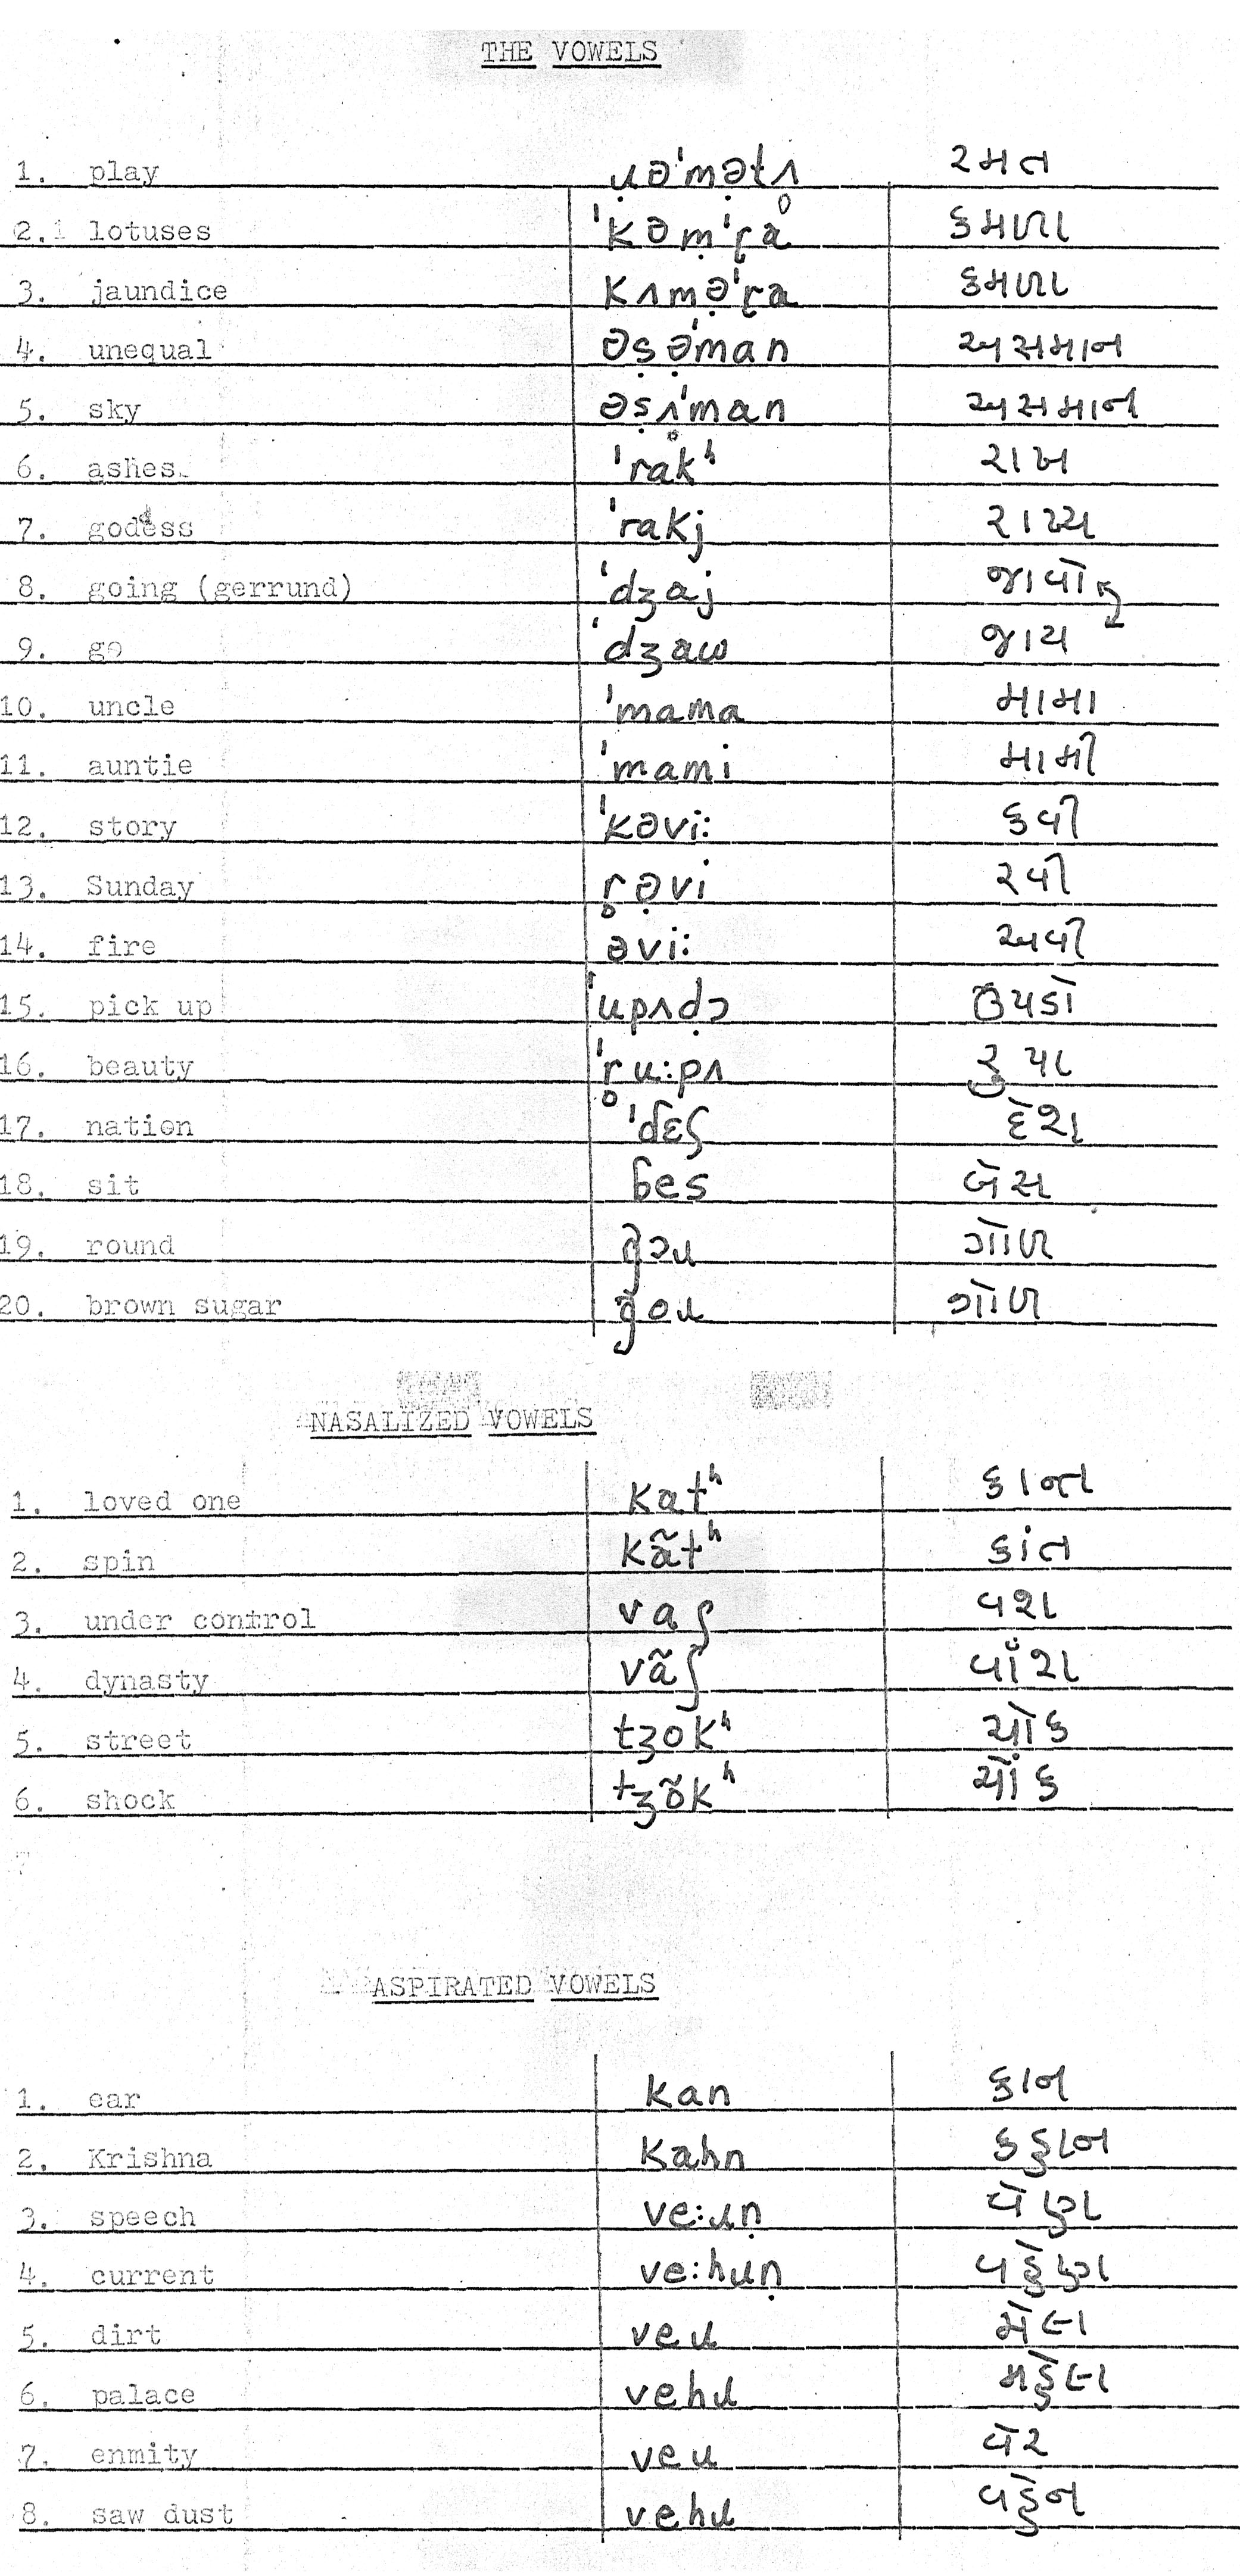 THE VOWELS
1. play ɹ̣ə'mə̣tʌ રમત
2. lotuses 'kəṃ'ɽå કમળા
3. jaundice kʌmə̣'ɽa કમળા
4. unequal əṣə̣'man અસમાન
5. sky əṣʌ'man અસમાન
6. ashes 'råkʰ રાખ
7. goddess 'rakj રાખ્ય
8. going (gerrund) 'dʒaj જાવો
9. go 'dʒaw જાય
10. uncle 'mama મામા
11. auntie 'mami મામી
12. story 'kəvi: કવી
13. Sunday r̥ə̣vi રવી
14. fire əvi: અવી
15. pick up 'upʌḍɔ ઉપડો
16. beauty 'r̥u:pʌ રુપા
17. nation 'ɗɛʂ દેશ
18. sit ɓes બેસ
19. round ɠɔɹ ગોળ
20. brown sugar ɠoɹ ગોળ
NASALIZED VOWELS
1. loved one katʰ કાન્ત
2. spin kãtʰ કાંત
3. under control vaʃ વશ
4. dynasty vãʃ વાંશ
5. street tʒokʰ ચોક
6. shock tʒõkʰ ચોંક
ASPIRATED VOWELS
1. ear kan કાન
2. Krishna kahn કહાન
3. speech ve:ɹṇ વેણ
4. current ve:hɹṇ વહેણ
5. dirt veɹ મેલ
6. palace vehɹ મહેલ
7. enmity veɹ વેર
8. saw dust vehɹ વહેન